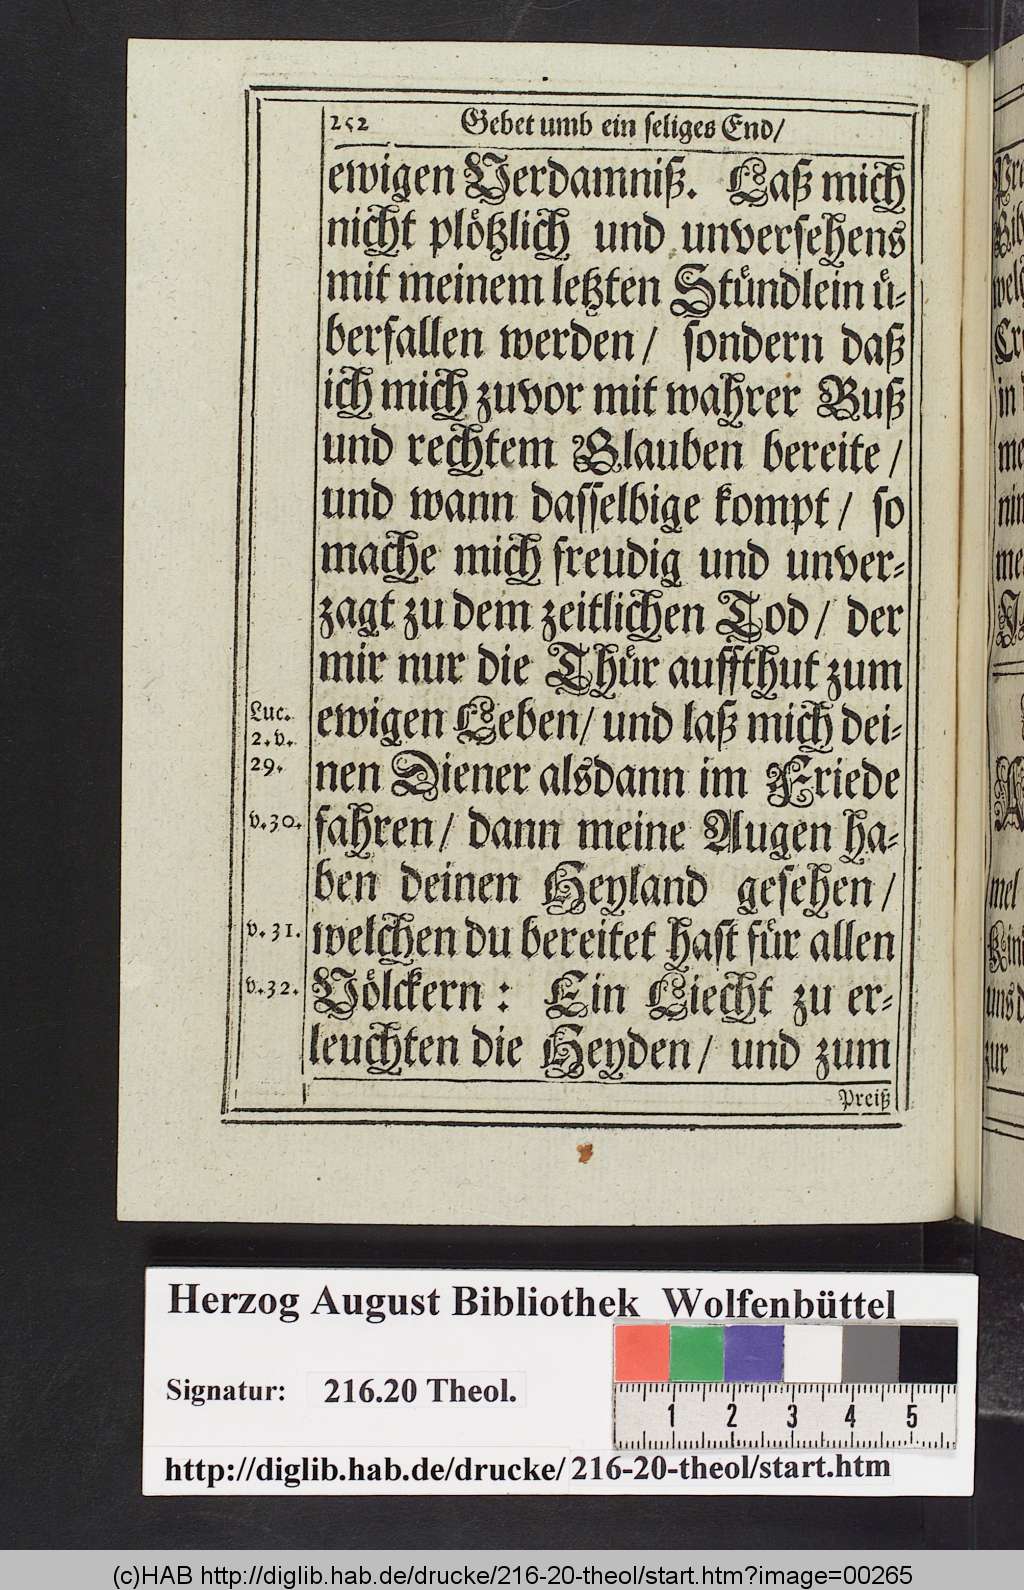 252 Gebet umb ein seliges End/
ewigen Verdamniß. Laß mich
nicht plötzlich und unversehens
mit meinem letzten Stündlein ü-
berfallen werden/ sondern daß
ich mich zuvor mit wahrer Buß
und rechtem Glauben bereite/
und wann dasselbige kompt/ so
mache mich freudig und unver-
zagt zu dem zeitlichen Tod/ der
mir nur die Thür auffthut zum
ewigen Leben/ und laß mich dei-
nen Diener alsdann im Friede
fahren/ dann meine Augen ha-
ben deinen Heyland gesehen/
welchen du bereitet hast für allen
Völckern: Ein Liecht zu er-
leuchten die Heyden/ und zum
Preiß
Luc.
2.v.
29.
v.30.
v.31.
v.32.
Herzog August Bibliothek Wolfenbüttel
Signatur: 216.20 Theol.
1 2 3 4 5
http://diglib.hab.de/drucke/216-20-theol/start.htm
(c)HAB http://diglib.hab.de/drucke/216-20-theol/start.htm?image=00265